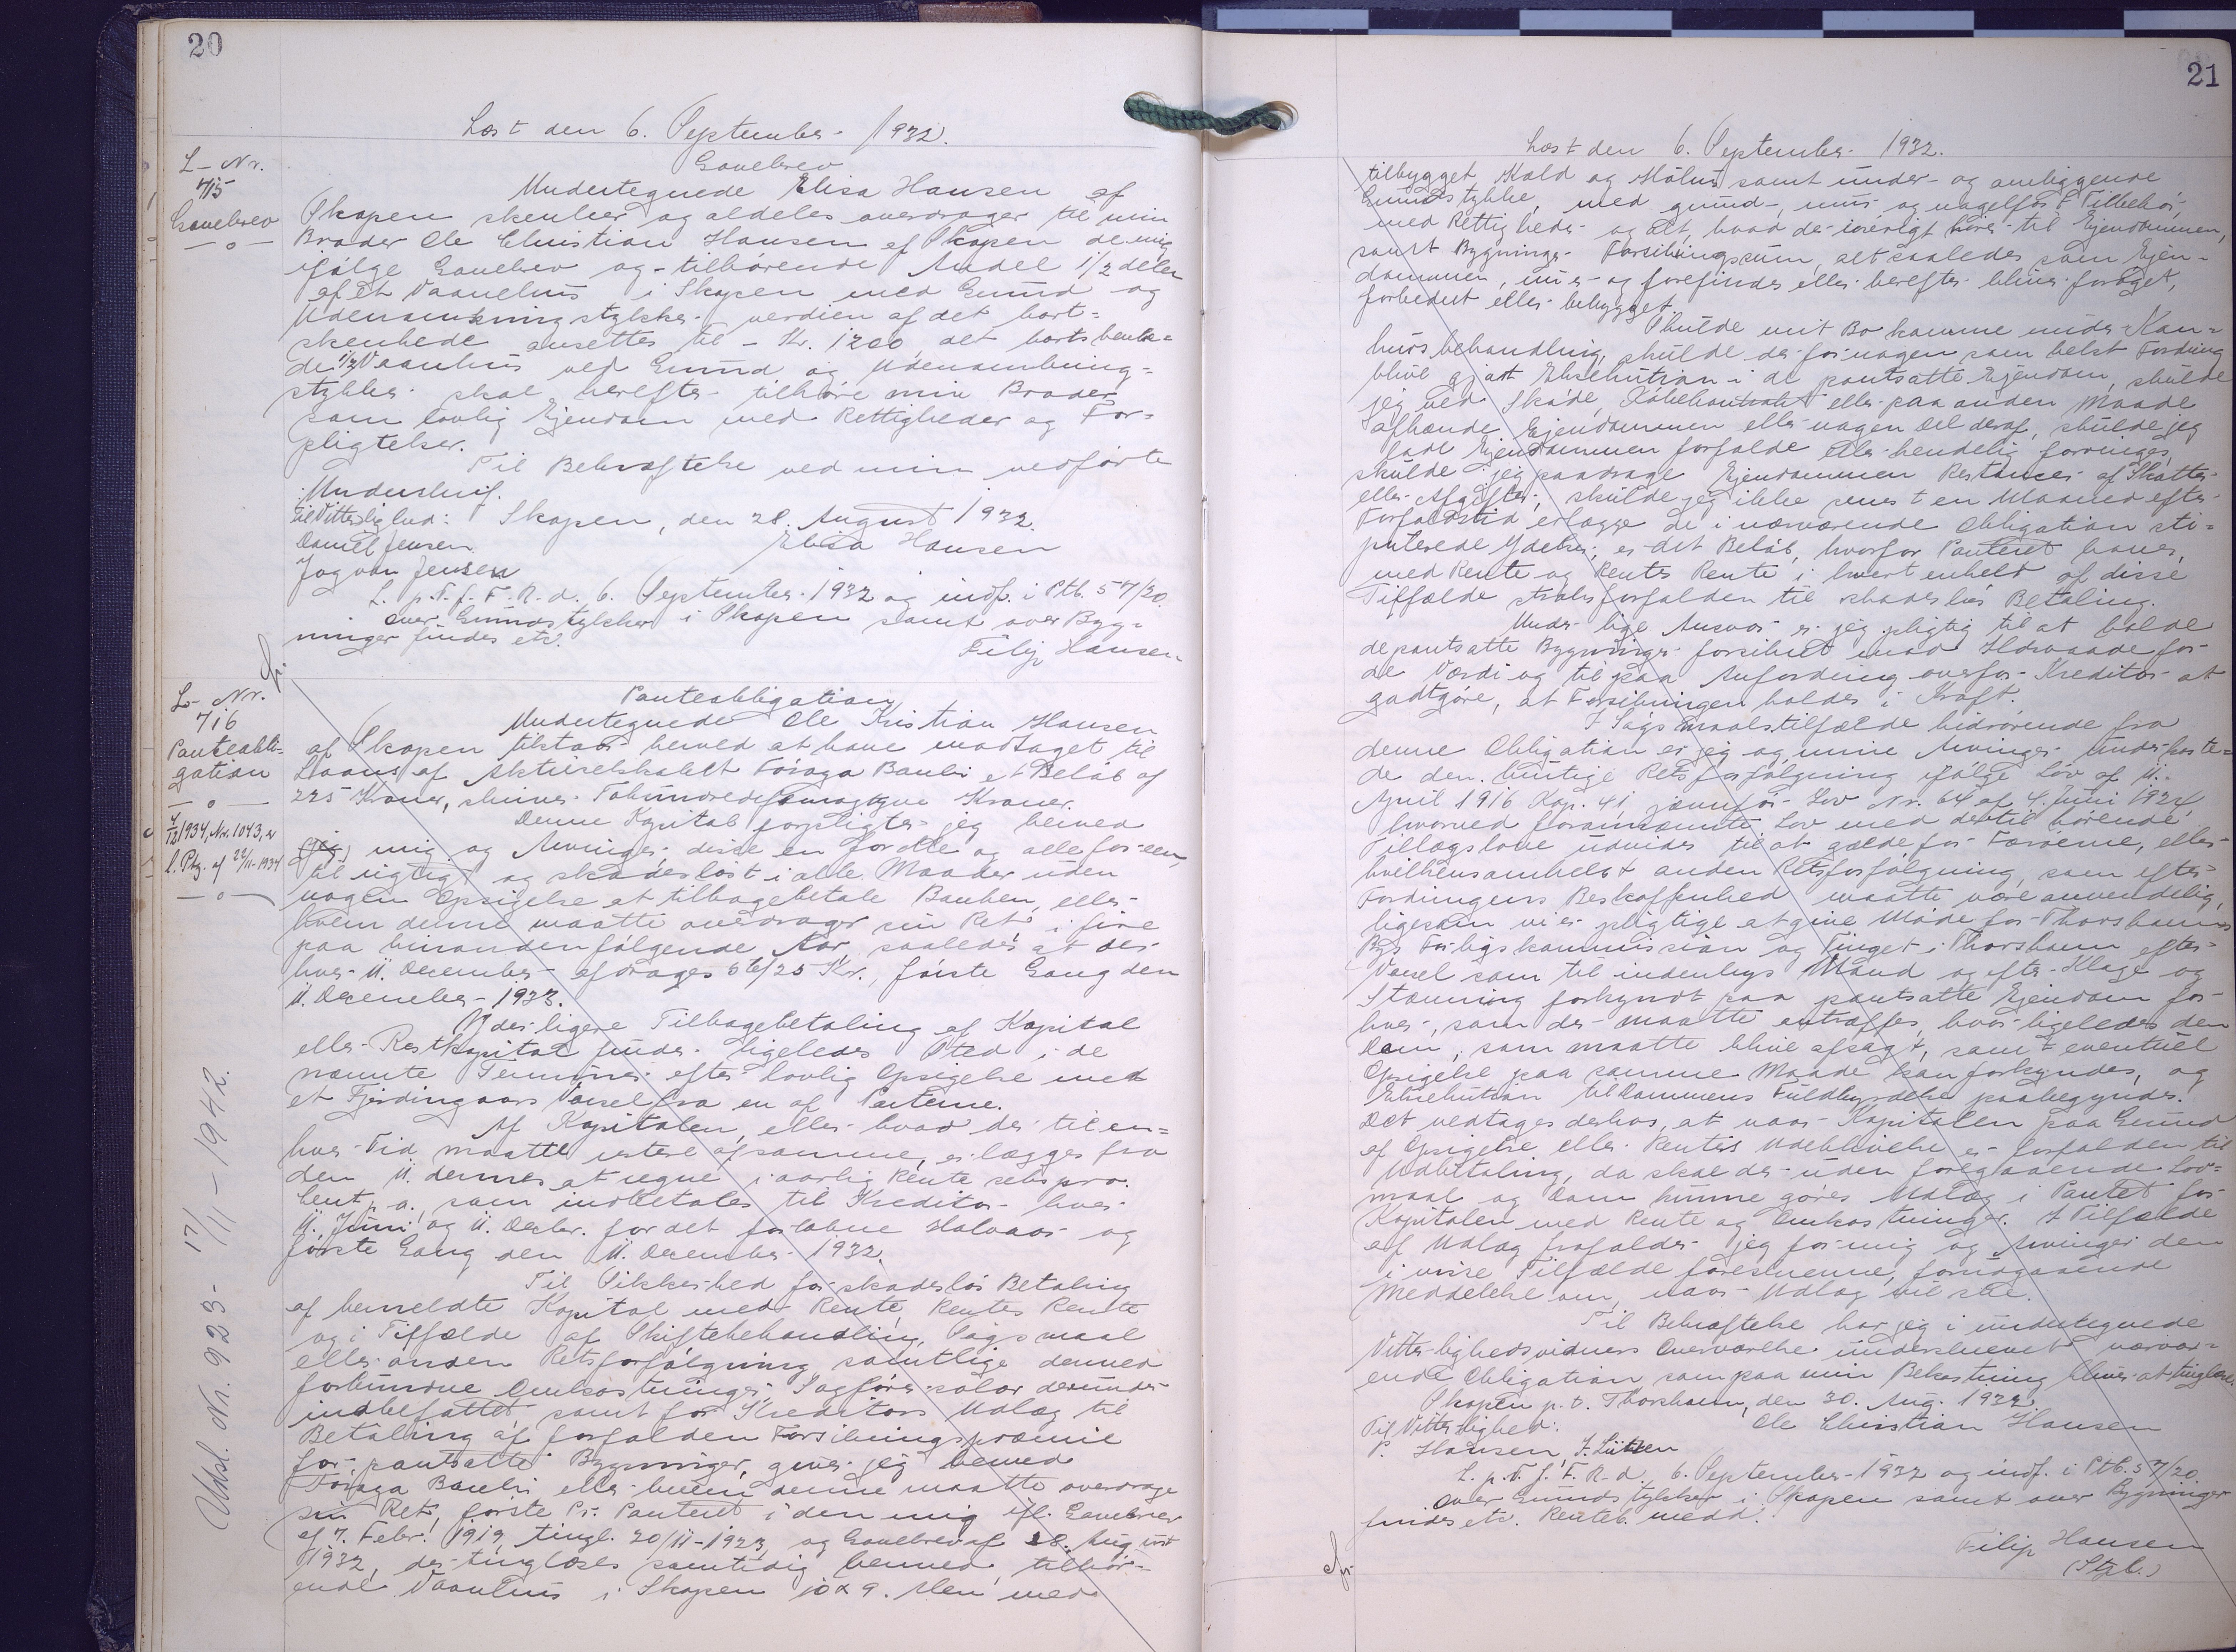 20
Læst den 6. September 1932.
L- Nr.
715
Gavebrev
Gavebrev
Undertegnede Elisa Hansen af
Skopen skenker og aldeles overdrager til min
Broder Ole Christian Hansen af Skopen de mig
ifølge Gavebrev og tilhørende Andel 1/2 delen
af et Vaanehus i Skopen med Grund og
Udenomkringstykker verdien af det bort=
skenkede ansettes til - Kr. 1200, det bortskenke=
de 1/2 Vaanhus ved Grund og Udenomkring=
stykker skal herefter tilhøre min Broder
som lovlig Ejendom med Rettigheder og For=
pligtelser.
Til Bekræftelse ved min vedførte
Underskrif.
til Vitterlighed: Skopen, den 28. August 1932.
Daniel Jensen Elisa Hansen
Jogvan Jensen
L. p. T. f. F. R. d. 6. September 1932 og indf. i Ptb. S 7/20.
Over Grundstykker i Skopen samt over Byg=
ninger findes etc.
Filip Hansen
L- Nr.
716
Panteobli=
gation
4/12 1934, Nr. 1043, er
l. Ptg. af 22/11-1934
Udsl. Nr. 923- 17/11-1942.
Panteobligation
Undertegnede Ole Kristian Hansen
af Skopen tilstaar herved at have modtaget til
Laans af Aktieselskabet Føroya Banki et Beløb af
225 Kroner, skriver Tohundredefemogtyve Kroner.
Denne Kapital forpligter jeg herved
mig og Arvinger disse en for alle og alle for een,
til rigtigt og skadesløst i alle Maader uden
nogen Opsigelse at tilbagebetale Banken, eller
hvem denne maatte overdrager sin Ret i fire
paa hinanden følgende Aar, saaledes at der
hver 11. December afdrages 56/25 Kr., første Gang den
11. December 1933.
Yderligere Tilbagebetaling af Kapital
eller Restkapital finder ligeledes Sted i de
nævnte Terminer efter lovlig Opsigelse med
et Fjerdingaars Varsel fra en af Parterne.
Af Kapitalen, eller hvad der til en=
hver Tid maatte restere af samme, erlægges fra
den 11. dennes at regne i aarlig Rente seks pro.
Cent p. a., som indbetales til Kreditor hver
11. Juni og 11. Decbr. for det forløbne Halvaar og
første Gang den 11. December 1932.
Til Sikkerhed for skadesløs Betaling
af bemeldte Kapital med Rente, Rentes Rente
og i Tilfælde af Skiftebehandling, Søgsmaal
eller anden Retsforfølgning samtlige dermed
forbundne Omkostninger, Sagførersalær derunder
indbefattet, samt for Kreditors Udlæg til
Betaling af forfalden Forsikringspræmie
for pantsatte Bygninger, giver jeg herved
Føroya Banki eller hvem denne maatte overdrage
sin Ret, første Pr. Panteret i den mig ifl. Gavebrev
af 7. Febr. 1919, tingl. 20/11-1923, og Gavebrev af 28. Aug.
1932, der tinglæses samtidig hermed, tilhør=
ende Vaanhus i Skopen 10 x 9. Alen med
21
Læst den 6. September 1932.
tilbygget Kold og Hølus samt under- og omliggende
Grundstykke, med grund-, mur- og nagelfast Tilbehør,
med Rettigheder og alt, hvad der iøvrigt hører til Ejendommen,
samt Bygnings Forsikringssum, alt saaledes som Ejen=
dommen, nu er og forefindes eller herefter bliver forøget,
forbedret eller bebygget.
Skulde mit Bo komme under Kon=
kursbehandling, skulde der for nogen som helst Fordring
blive gjort Eksekution i de pantsatte Ejendom, skulde
jeg ved Skøde, Købekontrakt eller paa anden Maade
afhænde Ejendommen eller nogen Del deraf, skulde jeg
lade Ejendommen forfalde eller kendelig forringes,
skulde jeg paadrage Ejendommen Restancer af Skatter
eller Afgifter, skulde jeg ikke senest en Maaned efter
Forfaldstid erlægge de i nærværende Obligation sti=
pulerede Ydelser, er det Beløb, hvorfor Panteret haves,
med Rente og Rentes Rente i hvert enkelt af disse
Tilfælde straks forfalden til skadesløs Betaling.
Under lige Ansvar er jeg pligtig til at holde
de pantsatte Bygninger forsikret mod Ildsvaade for
de Værdi og til paa Anfordring overfor Kreditor at
godtgøre, at Forsikringen holdes i Kraft.
I Søgsmaalstilfælde hidrørende fra
denne Obligation er jeg og mine Arvinger underkaste=
de den hurtige Retsforfølgning ifølge Lov af 11.
April 1916 Kap. 41, jævnfør Lov Nr. 64 af 4. Juni 1924,
hvorved forannævnte Lov med dertil hørende
Tillægslove udvides til at gælde for Færøerne, eller
hvilkensomhelst anden Retsforfølgning, som efter
Fordringens Beskaffenhed maatte være anvendelig,
ligesom vi er pligtige at give Møde for Thorshavns
Bys Forligskommission og Tinget i Thorshavn efter
Varsel som til indenbys Mand og efter Klage og
Stævning forkyndt paa pantsatte Ejendom for
hver, som der maatte antræffes, hvor ligeledes den
Dom, som maatte blive afsagt, samt eventuel
Opsigelse paa samme Maade kan forkyndes, og
Eksekution til Dommens Fuldbyrdelse paabegyndes.
Det vedtages derhos, at naar Kapitalen paa Grund
af Opsigelse eller Rentes Udeblivelse er forfalden til
Udbetaling, da skal der uden foregaaende Lov=
maal og Dom kunne gøres Udlæg i Pantet for
Kapitalen med Rente og Omkostninger. I Tilfælde
af Udlæg frafalder jeg for mig og Arvinger den
i visse Tilfælde foreskrevne, forudgaaende
Meddelelse om, naar Udlæg vil ske.
Til Bekræftelse har jeg i undertegnede
Vitterlighedsvidners Overværelse underskrevet nærvær=
ende Obligation som paa min Bekostning bliver at tinglæse.
Skopen p. t. Thorshavn, den 30. Aug. 1932.
Til Vitterlighed: Ole Christian Hansen
P. Hansen, J. Lützen
L. p. T. f. F. R. d. 6. September 1932 og indf. i Ptb. S 7/20.
Over Grundstykker i Skopen samt over Bygninger
findes etc. Renteb. medd.
Filip Hansen
(Stgb.)